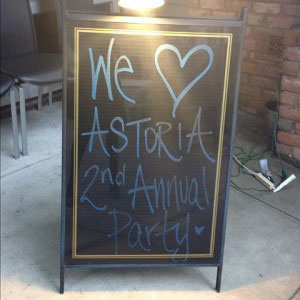 We ♡
ASTORIA
2nd Annual
Party ♥